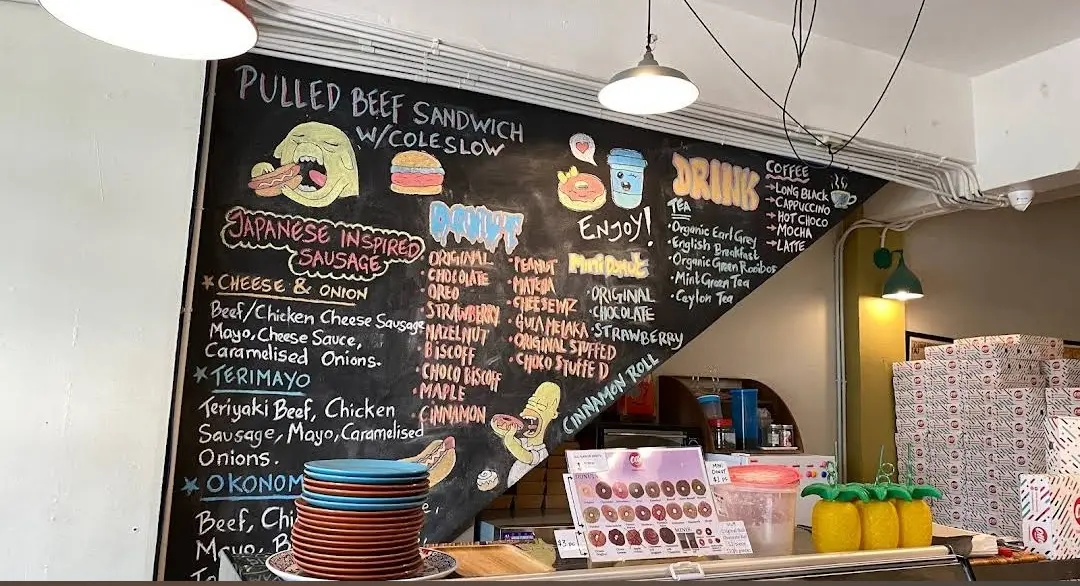 PULLED BEEF SANDWICH
W/COLESLOW
JAPANESE INSPIRED
SAUSAGE
CHEESE & ONION
Beef/Chicken Cheese Sausage
Mayo, Cheese Sauce,
Caramelised Onions.
TERIMAYO
Teriyaki Beef, Chicken
Sausage, Mayo, Caramelised
Onions.
OKONOM
Beef, Chi
Mayo, B
To
DONUT
ORIGINAL
CHOCOLATE
OREO
STRAWBERRY
HAZELNUT
BISCOFF
CHOCO BISCOFF
MAPLE
CINNAMON
PEANUT
MATCHA
CHEESEWIZ
GULA MELAKA
ORIGINAL STUFFED
CHOCO STUFFED
ENJOY!
MINI DONUT
ORIGINAL
CHOCOLATE
STRAWBERRY
CINNAMON ROLL
DRINK
TEA
Organic Earl Grey
English Breakfast
Organic Green Rooibos
Mint Green Tea
Ceylon Tea
COFFEE
LONG BLACK
CAPPUCCINO
HOT CHOCO
MOCHA
LATTE
MINI
DONUT